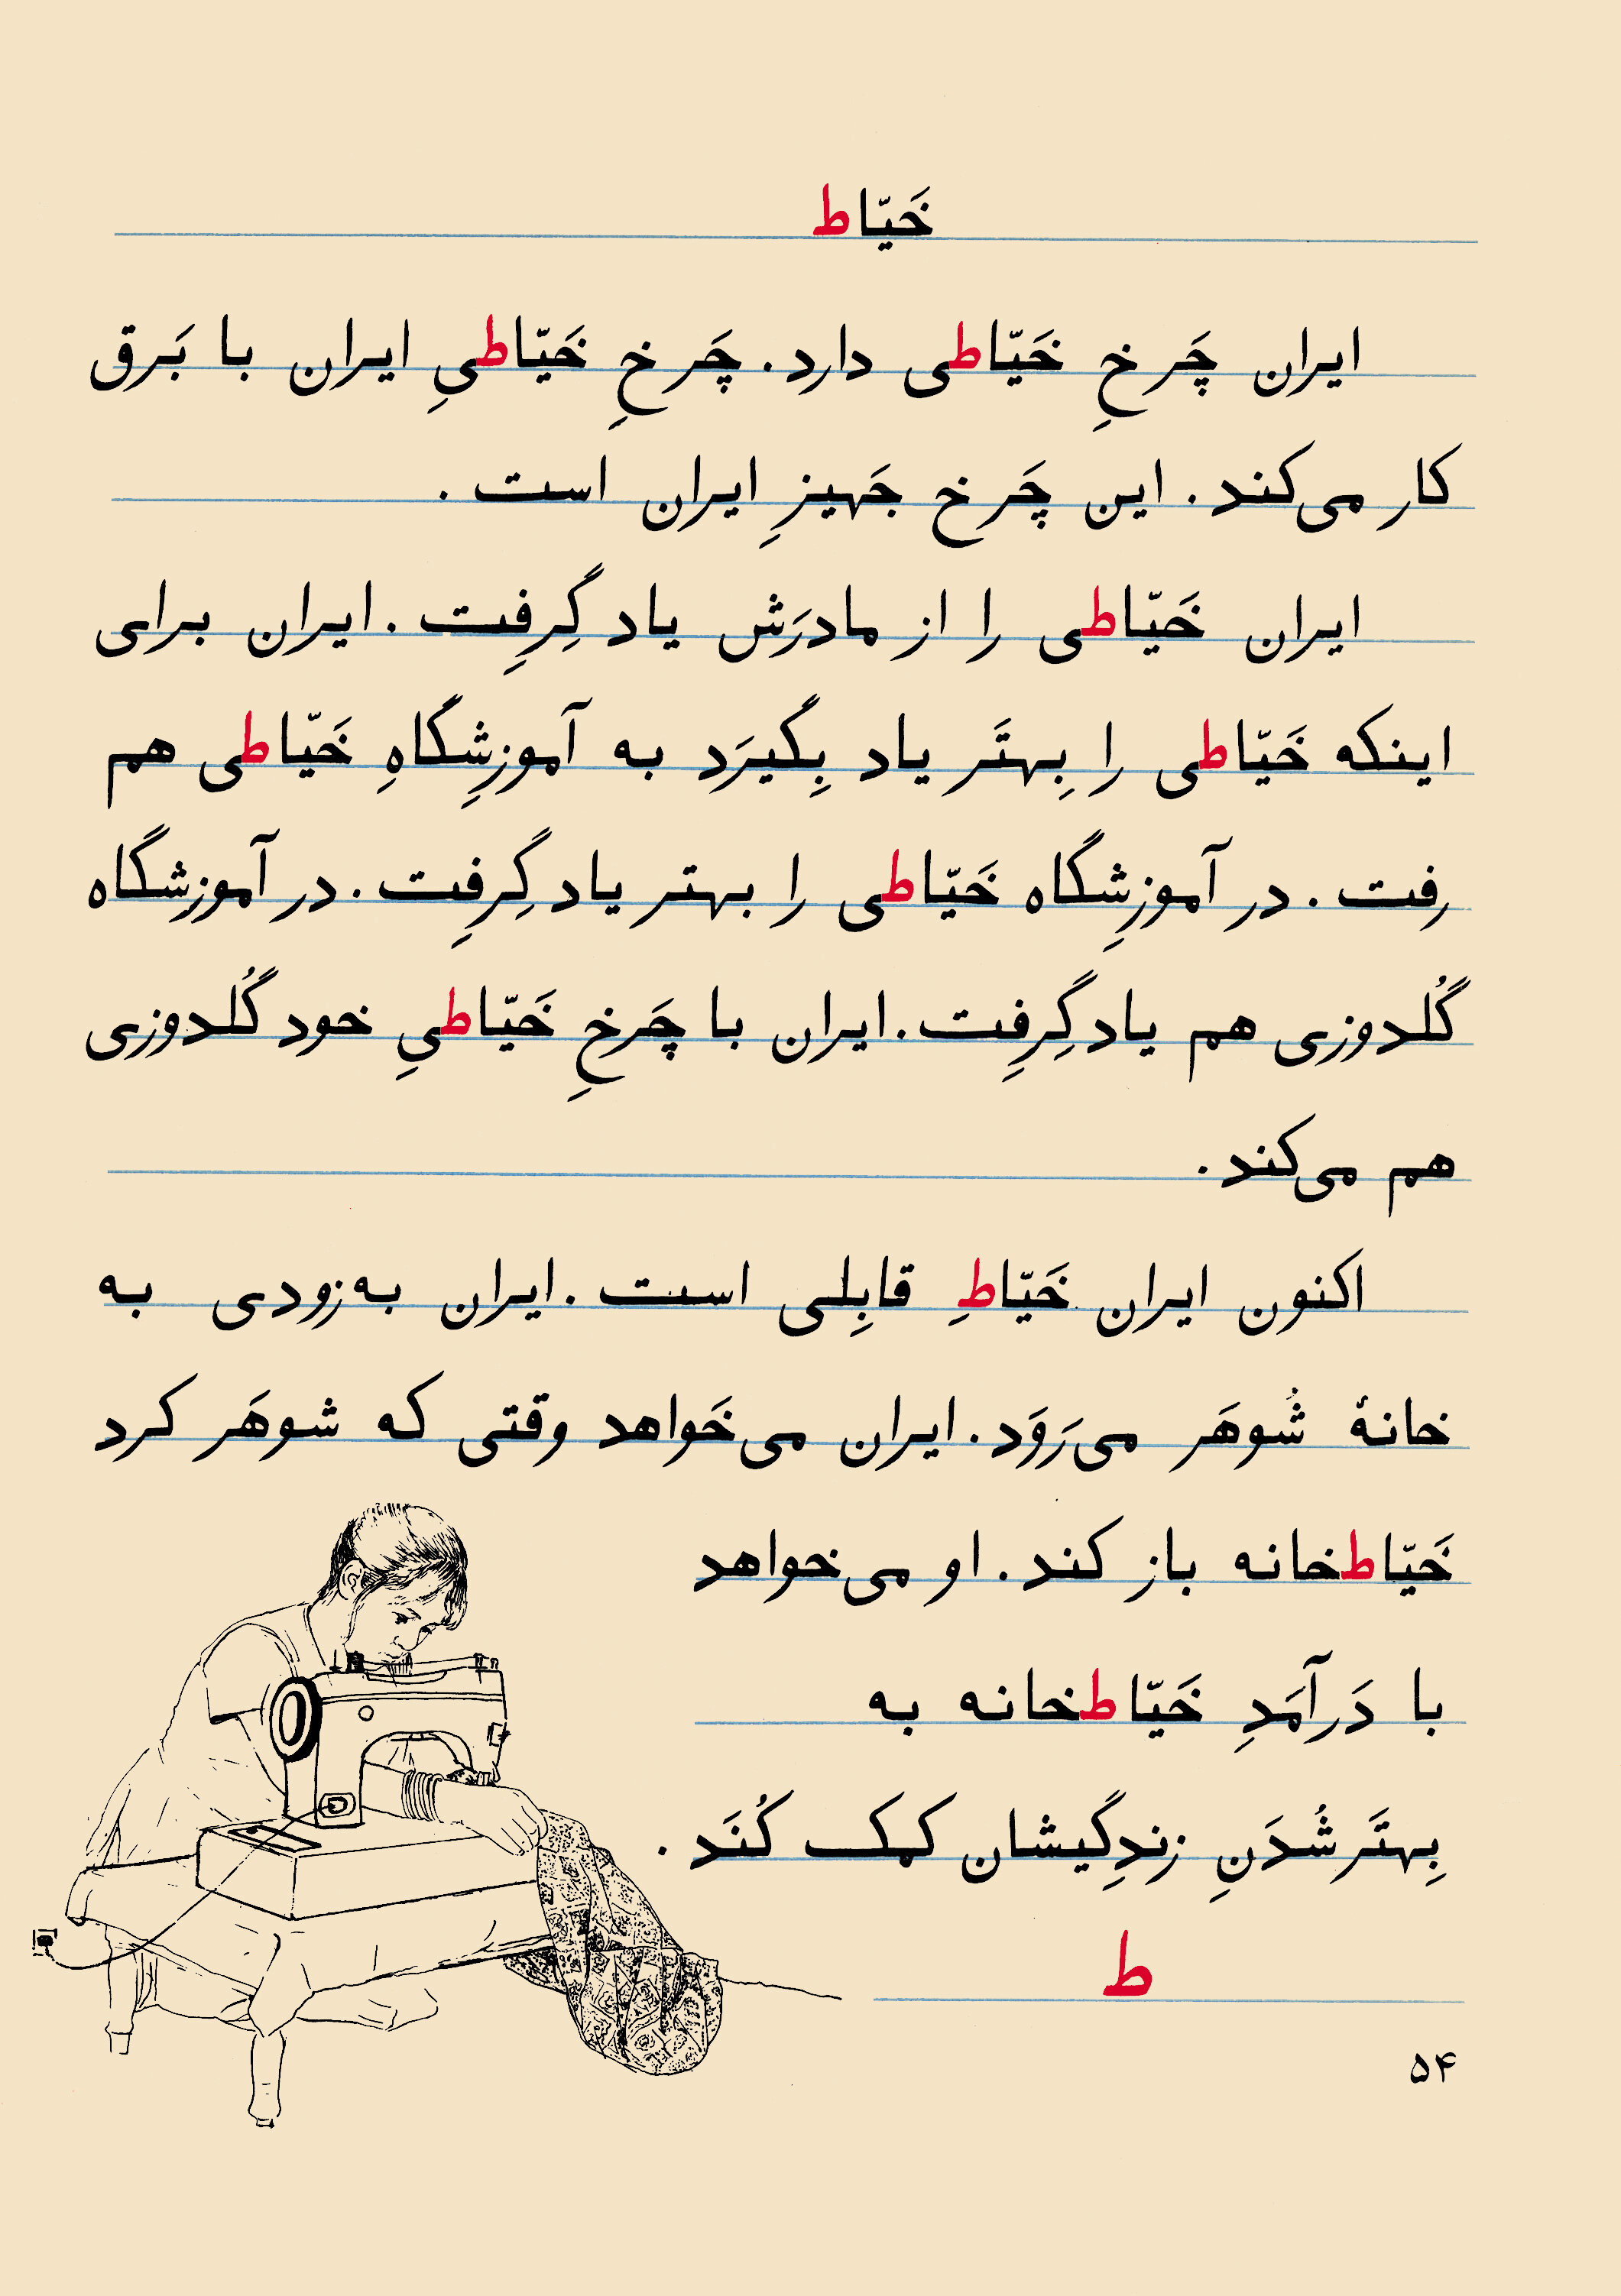 خَیّاط
ایران چَرخِ خَیّاطی دارد. چَرخِ خَیّاطیِ ایران با بَرق
کار می‌کند. این چَرخ جَهیزِ ایران است.
ایران خَیّاطی را از مادرَش یاد گِرِفت. ایران برای
اینکه خَیّاطی را بِهتَر یاد بِگیرَد به آموزِشگاهِ خَیّاطی هم
رفت. در آموزِشگاه خَیّاطی را بهتر یاد گِرِفت. در آموزشگاه
گُلدوزی هم یاد گِرِفت. ایران با چَرخِ خَیّاطیِ خود گُلدوزی
هم می‌کند.
اکنون ایران خَیّاطِ قابِلی است. ایران به‌زودی به
خانهٔ شُوهَر می‌رَوَد. ایران می‌خَواهد وقتی که شوهَر کرد
خَیّاطخانه باز کند. او می‌خواهد
با دَرآمَدِ خَیّاطخانه به
بِهتَر شُدَنِ زندِگیشان کمک کُنَد.
ط
۵۴